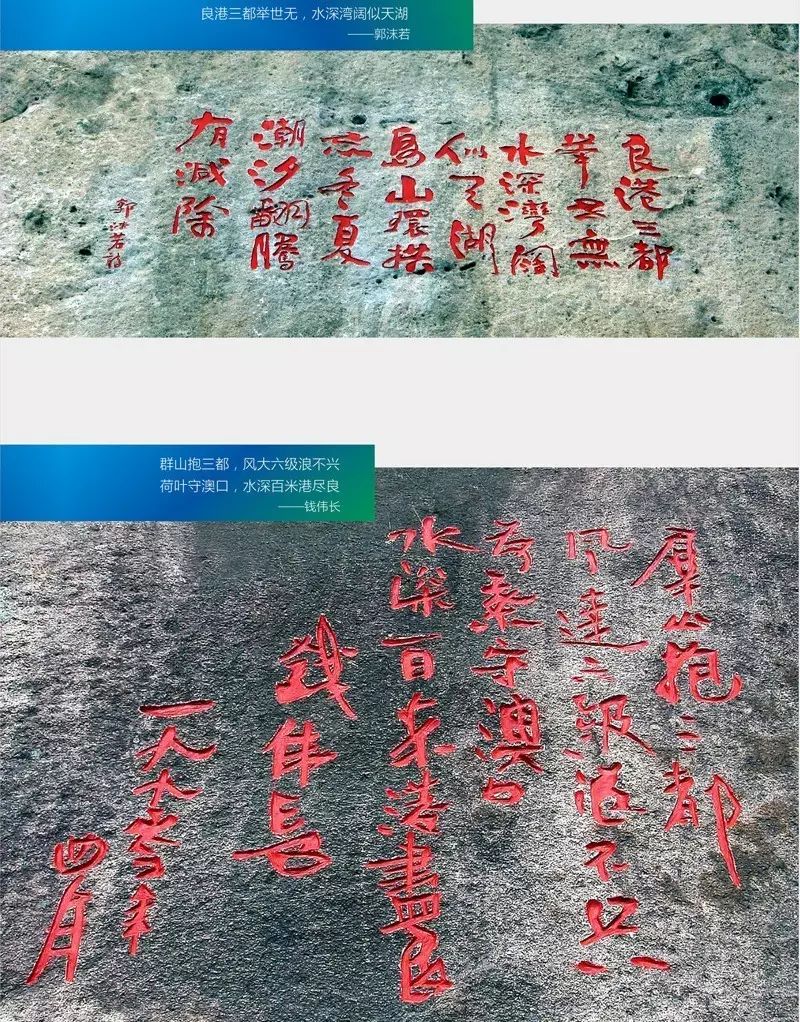 良港三都举世无，水深湾阔似天湖
——郭沫若
良港三都
举世無
水深灣闊
似天湖
島山環拱
忘冬夏
潮汐翻騰
有减除
郭沫若詩
群山抱三都，风大六级浪不兴
荷叶守澳口，水深百米港尽良
——钱伟长
羣山抱三都
风達六級浪不兴
荷葉守澳口
水深百米港盡良
錢伟長
四月